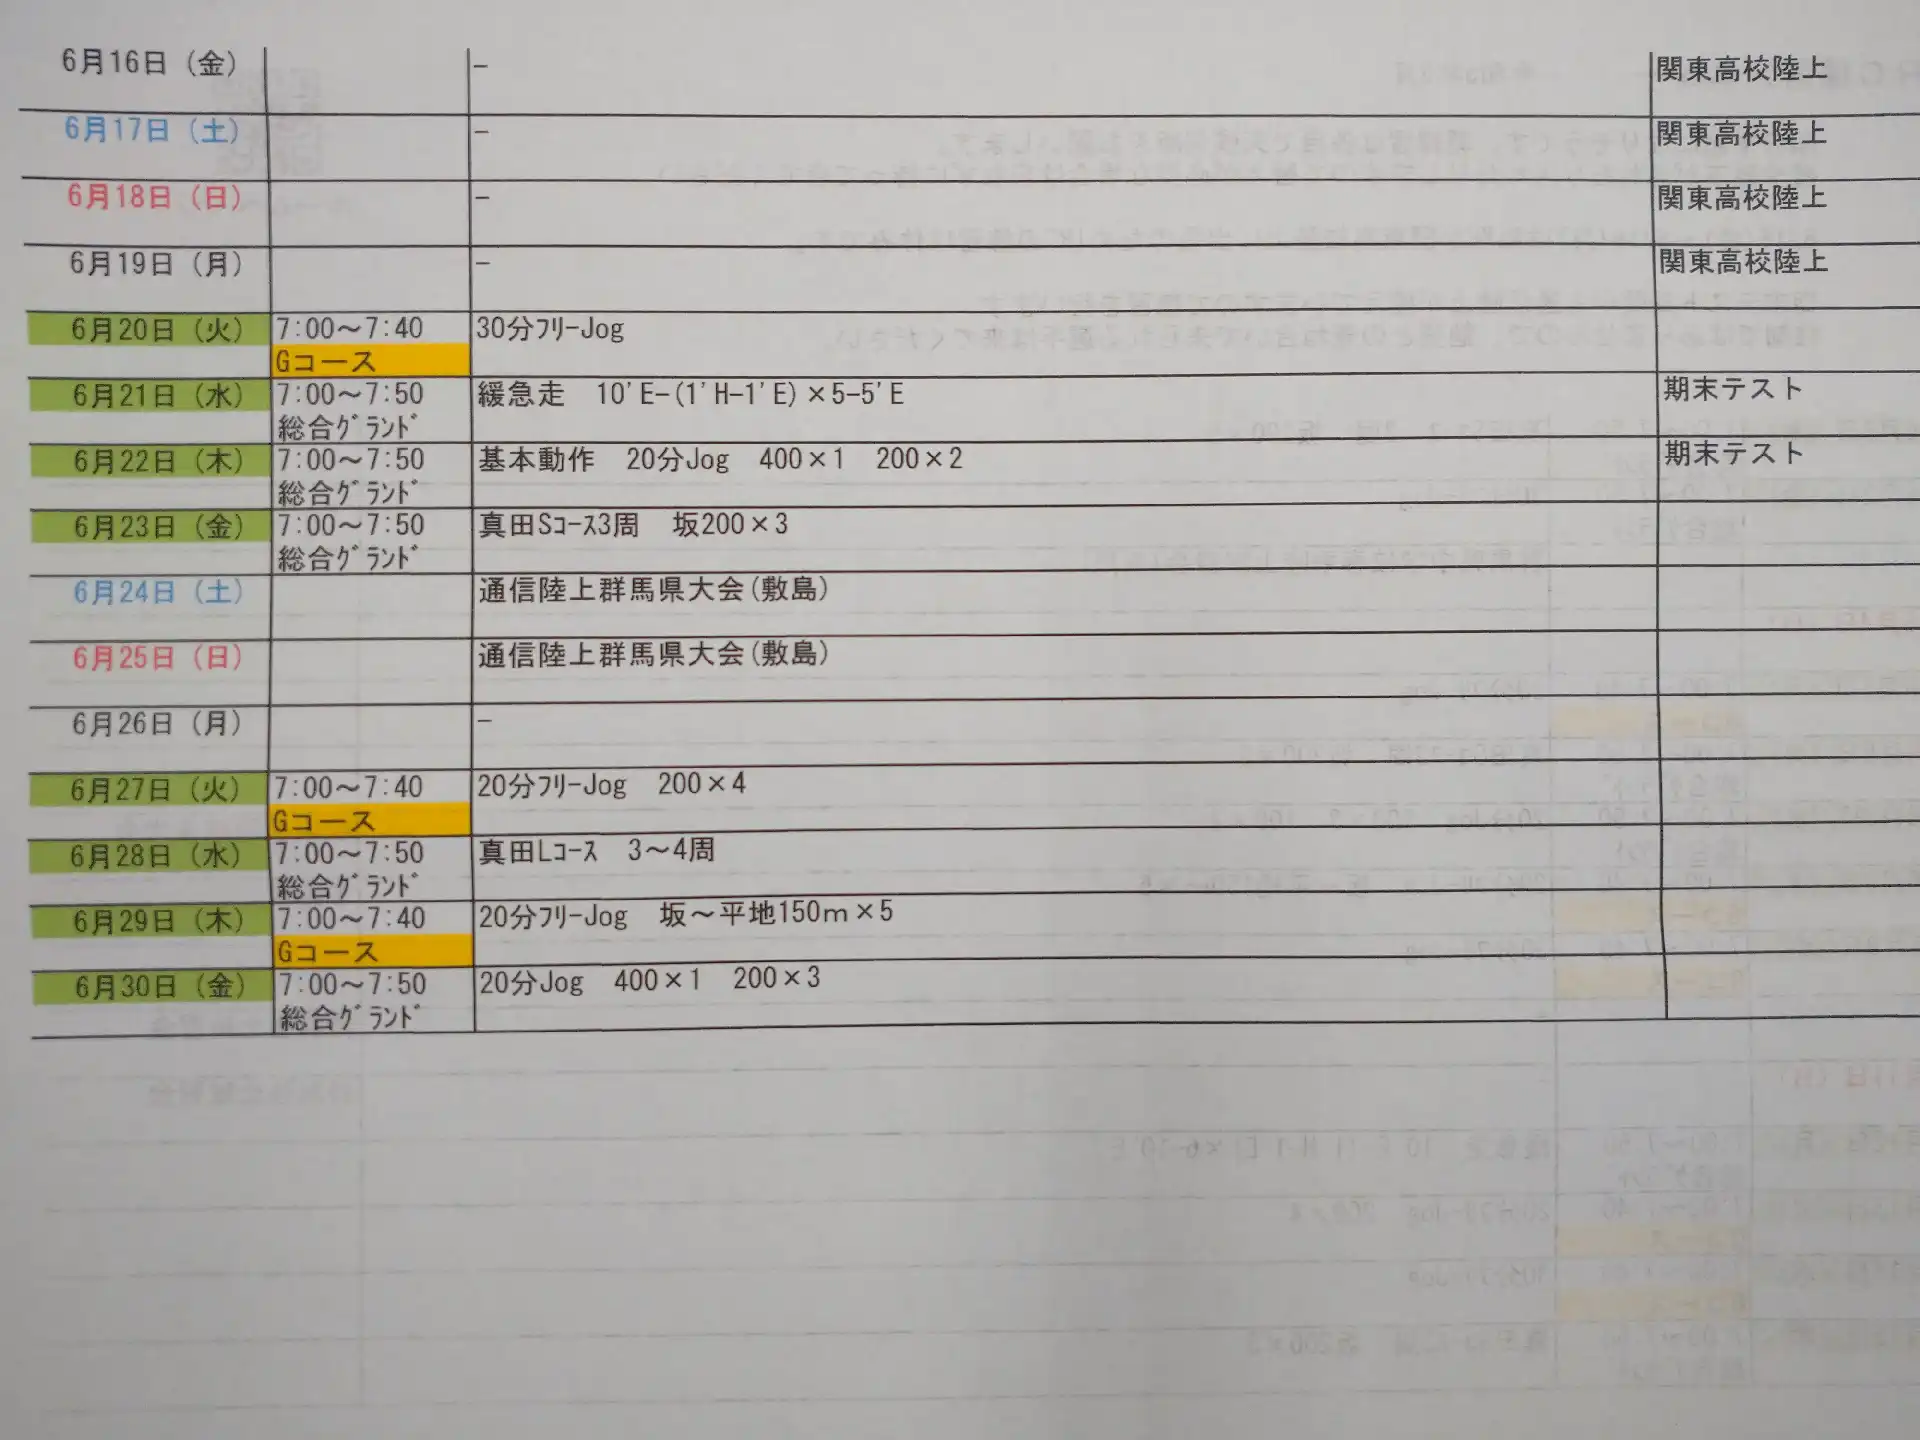 6月16日（金） － 関東高校陸上
6月17日（土） － 関東高校陸上
6月18日（日） － 関東高校陸上
6月19日（月） － 関東高校陸上
6月20日（火） 7:00～7:40 30分ﾌﾘｰJog
Gコース
6月21日（水） 7:00～7:50 緩急走　10'E-(1'H-1'E)×5-5'E 期末テスト
総合ｸﾞﾗﾝﾄﾞ
6月22日（木） 7:00～7:50 基本動作　20分Jog　400×1　200×2 期末テスト
総合ｸﾞﾗﾝﾄﾞ
6月23日（金） 7:00～7:50 真田Sｺｰｽ3周　坂200×3
総合ｸﾞﾗﾝﾄﾞ
6月24日（土） 通信陸上群馬県大会(敷島)
6月25日（日） 通信陸上群馬県大会(敷島)
6月26日（月） －
6月27日（火） 7:00～7:40 20分ﾌﾘｰJog　200×4
Gコース
6月28日（水） 7:00～7:50 真田Lｺｰｽ　3～4周
総合ｸﾞﾗﾝﾄﾞ
6月29日（木） 7:00～7:40 20分ﾌﾘｰJog　坂～平地150ｍ×5
Gコース
6月30日（金） 7:00～7:50 20分Jog　400×1　200×3
総合ｸﾞﾗﾝﾄﾞ